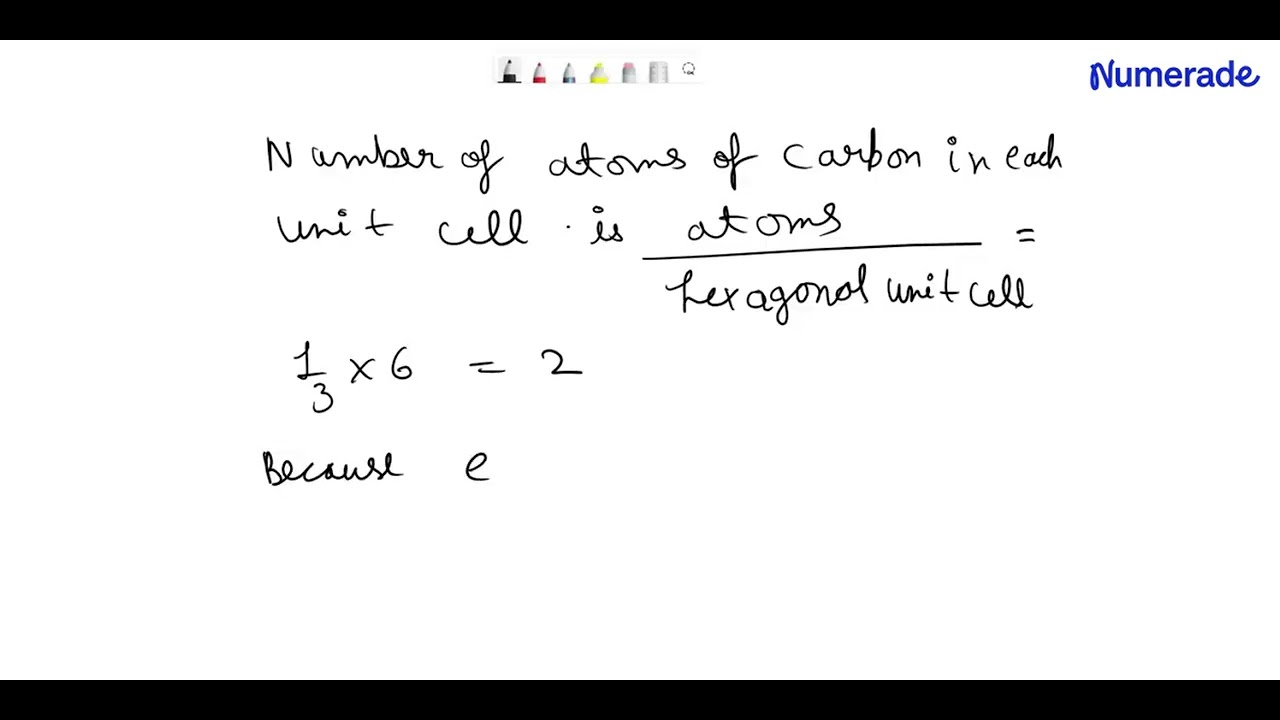 Numerade
Number of atoms of carbon in each
unit cell . is atoms =
hexagonal unit cell
1/3 × 6 = 2
Because e